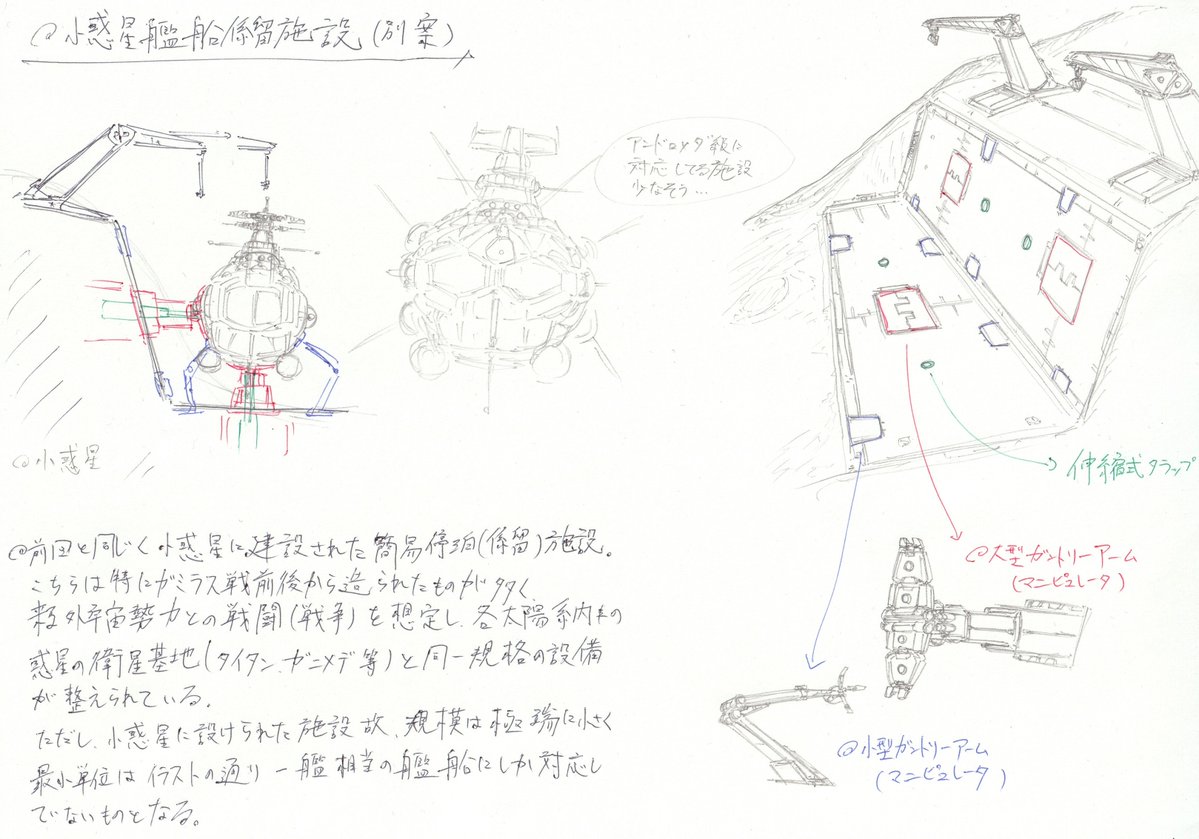 @小惑星艦船係留施設(別案)
アンドロメダ級に
対応してる施設
少なそう…
@小惑星
伸縮式タラップ
@大型ガントリーアーム
(マニピュレータ)
@小型ガントリーアーム
(マニピュレータ)
@前回と同じく小惑星に建設された簡易停泊(係留)施設。
こちらは特にガミラス戦前後から造られたものが多く
外宇宙勢力との戦闘(戦争)を想定し、各太陽系内の
惑星の衛星基地(タイタン、ガニメデ等)と同一規格の設備
が整えられている。
ただし、小惑星に設けられた施設故、規模は極端に小さく
最小単位はイラストの通り一艦相当の艦船にしか対応し
でないものとなる。